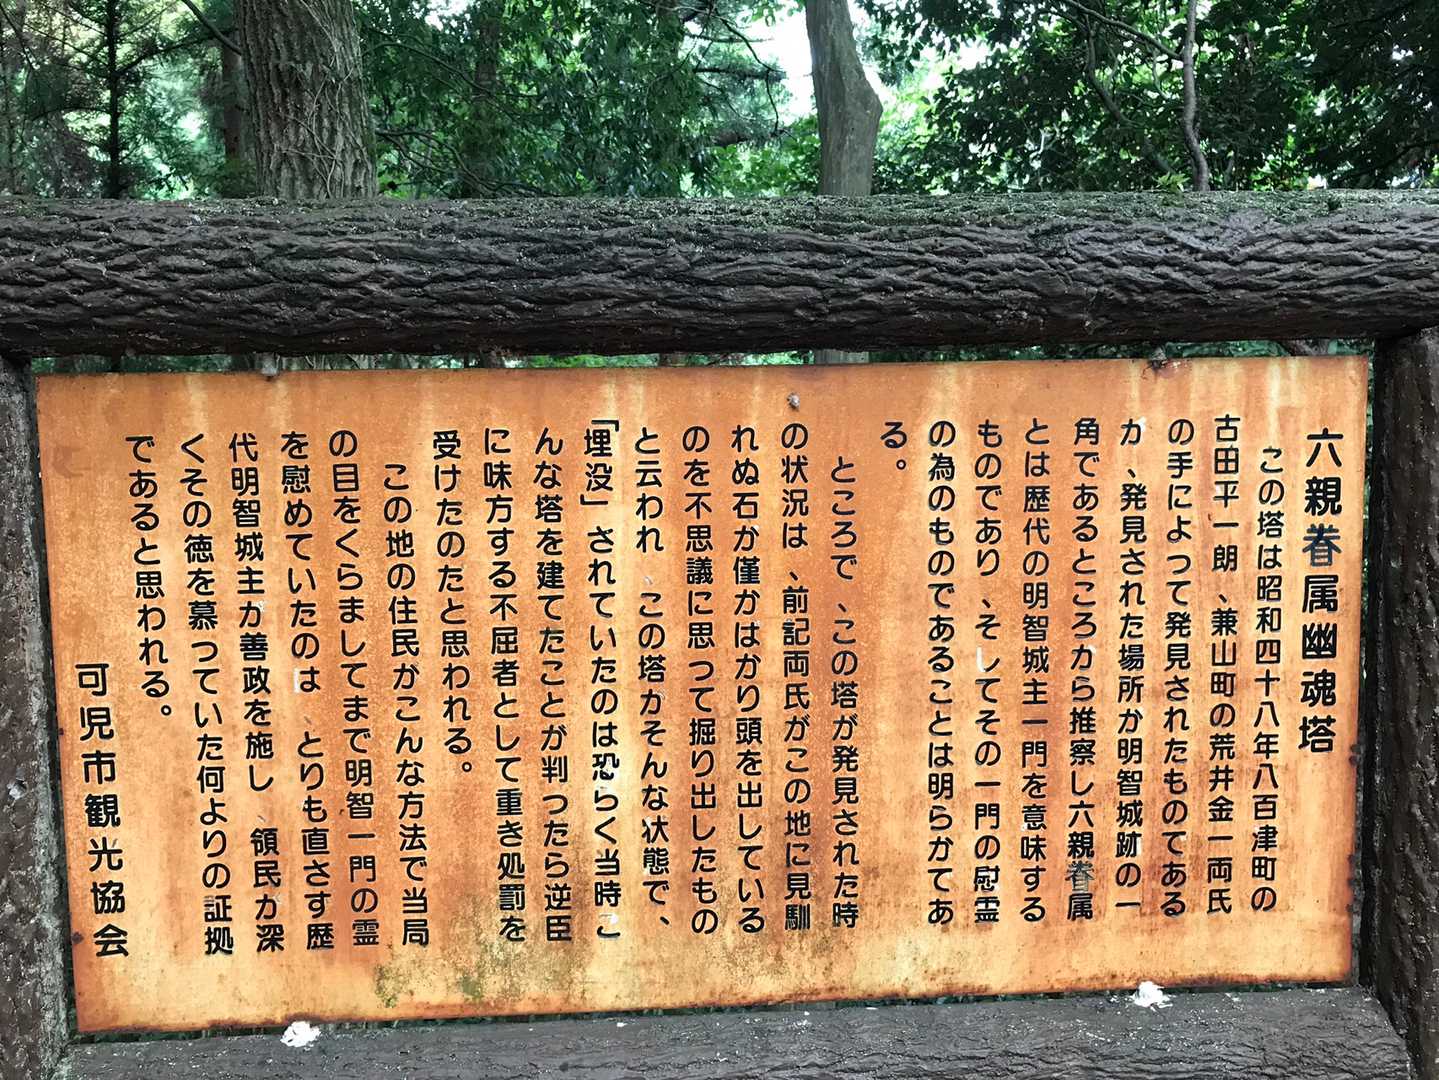 六親眷属幽魂塔
この塔は昭和四十八年八百津町の
古田平一朗、兼山町の荒井金一両氏
の手によって発見されたものてある
か、発見された場所か明智城跡の一
角であるところから推察し六親眷属
とは歴代の明智城主一門を意味する
ものであり、そしてその一門の慰霊
の為のものであることは明らかてあ
る。
ところで、この塔が発見された時
の状況は、前記両氏がこの地に見馴
れぬ石か僅かはかり頭を出している
のを不思議に思って掘り出したもの
と云われ、この塔かそんな状態で、
「埋没」されていたのは恐らく当時こ
んな塔を建てたことが判ったら逆臣
に味方する不屈者として重き処罰を
受けたのたと思われる。
この地の住民かこんな方法で当局
の目をくらましてまで明智一門の霊
を慰めていたのは、とりも直さす歴
代明智城主か善政を施し、領民か深
くその徳を慕っていた何よりの証拠
であると思われる。
可児市観光協会